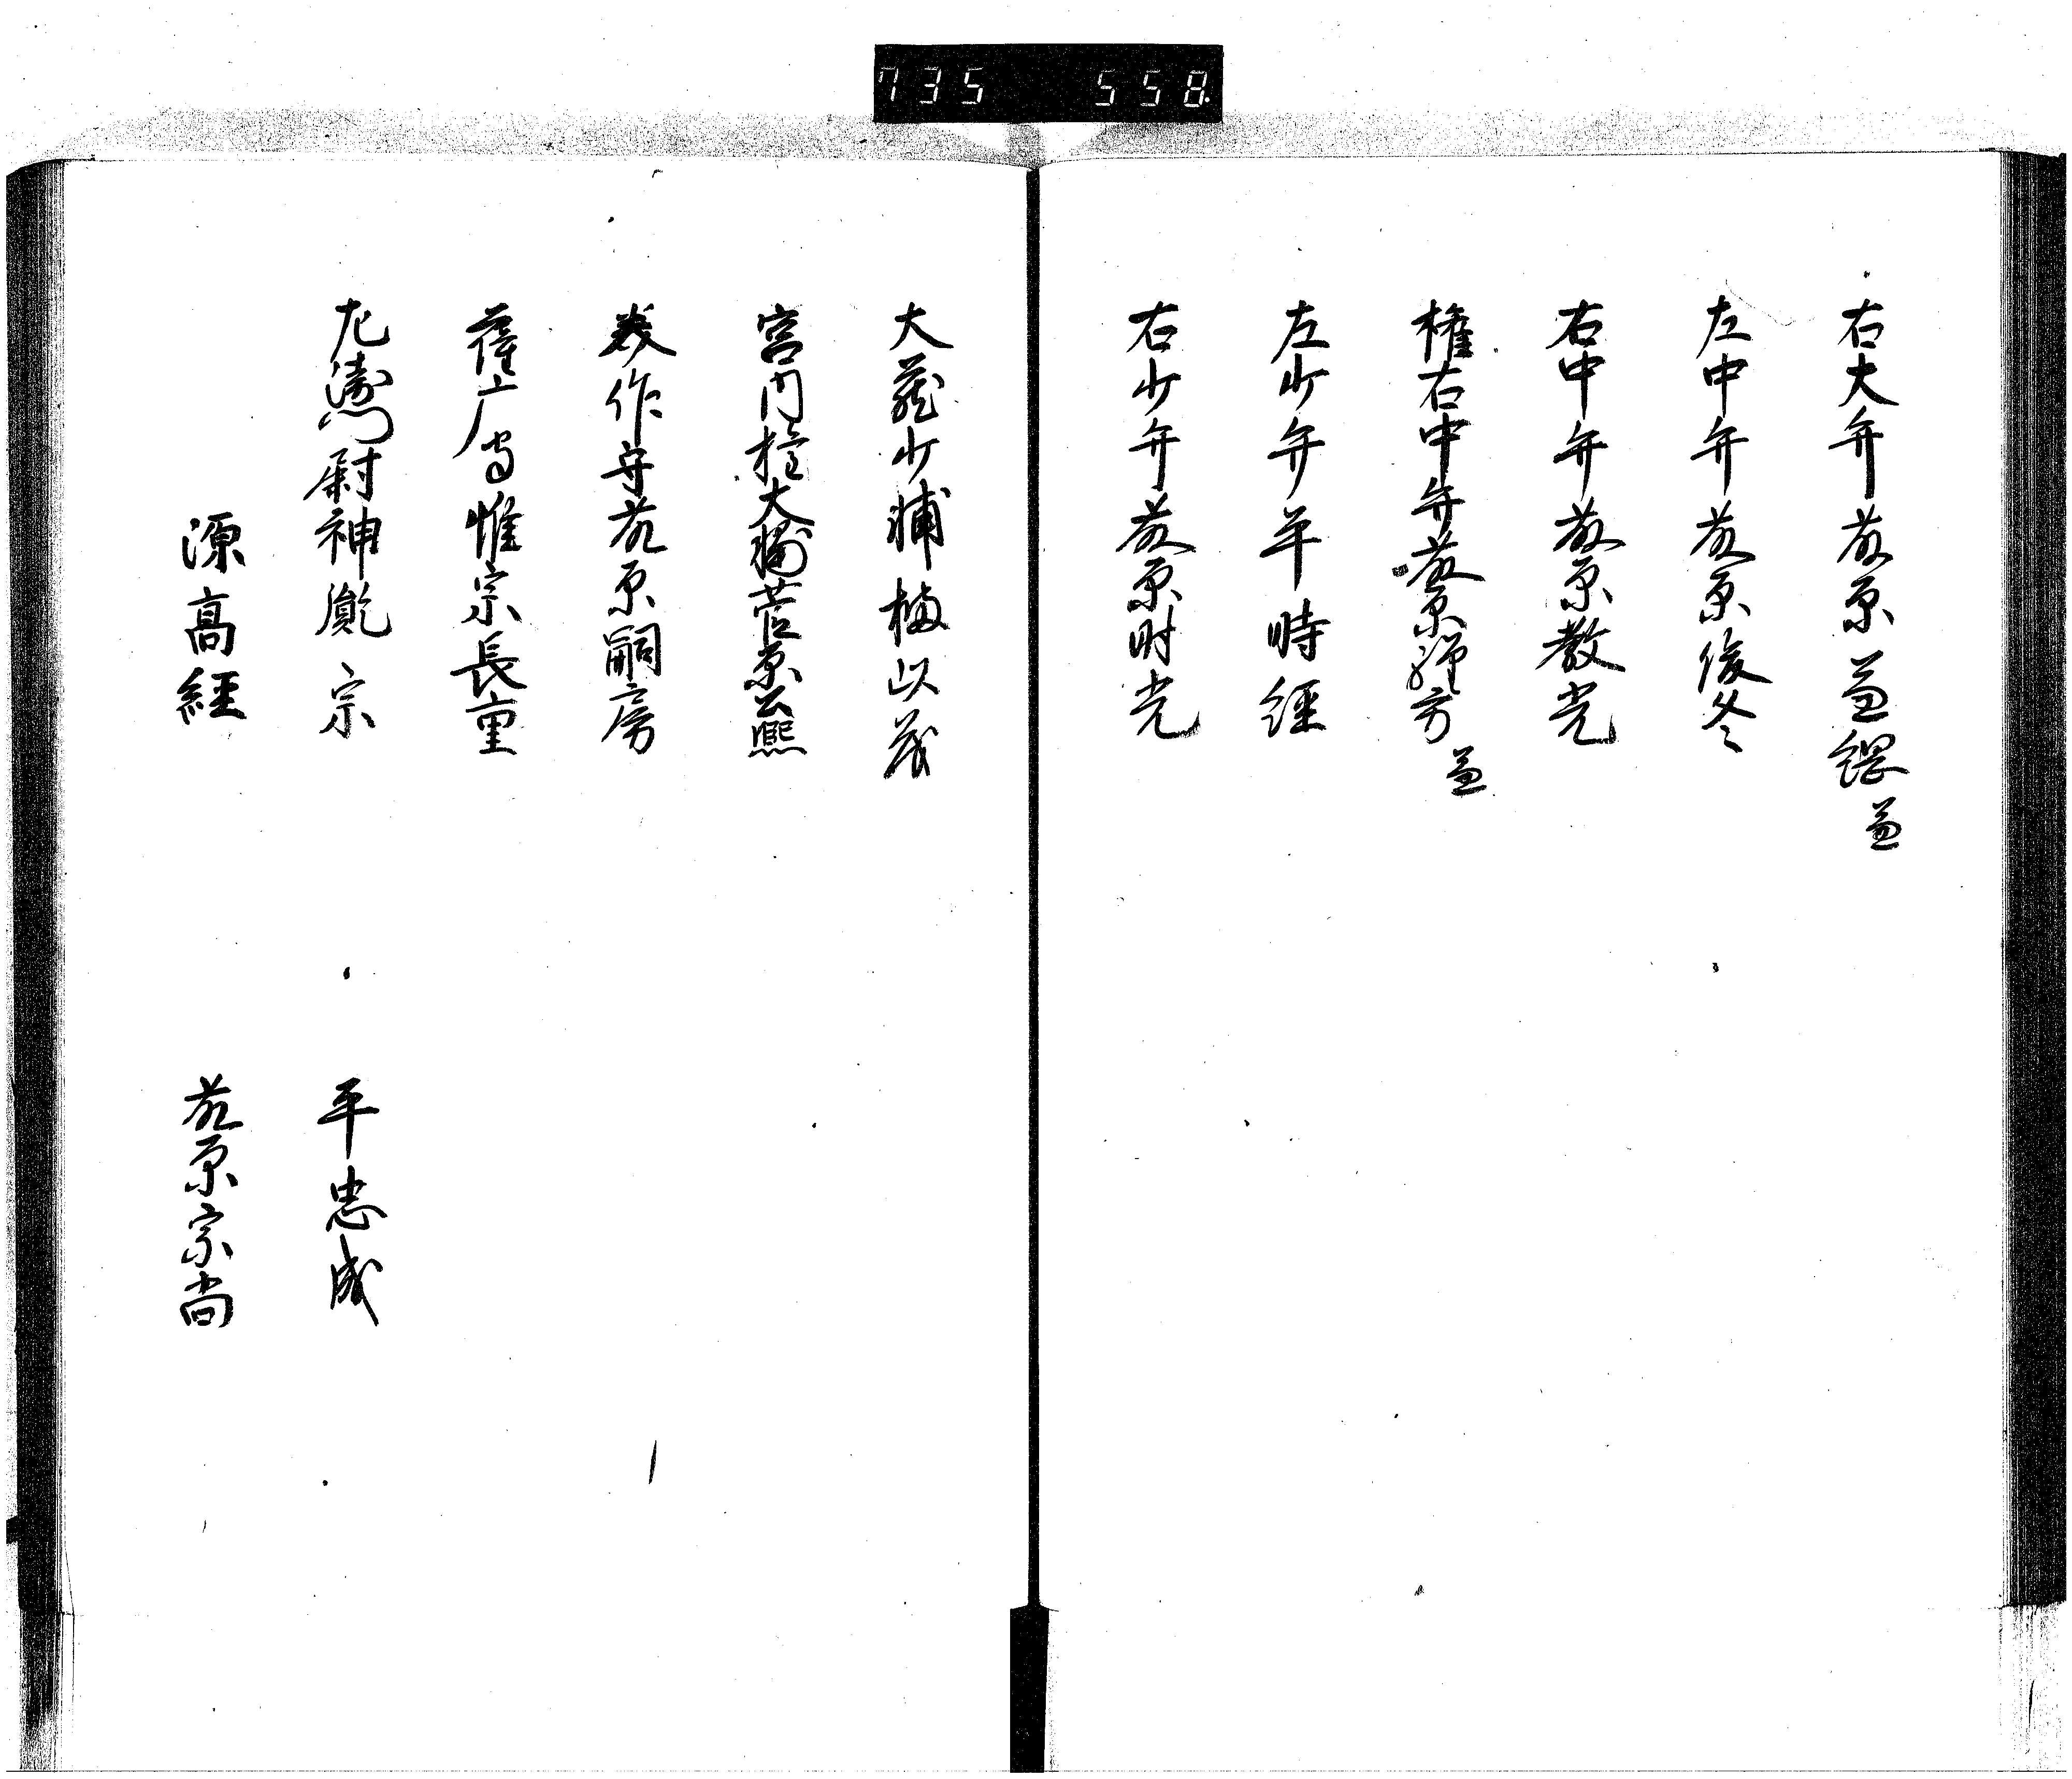 735 558
右大弁藤原兼綱兼
左中弁藤原俊冬
右中弁藤原教光
権右中弁藤原親方兼
左少弁平時経
右少弁藤原時光
大蔵少輔橘以茂
宮内権大輔菅原公熙
美作守藤原嗣房
薩广守惟宗長重
左衛門尉神胤宗
平忠成
源高経
藤原宗尚